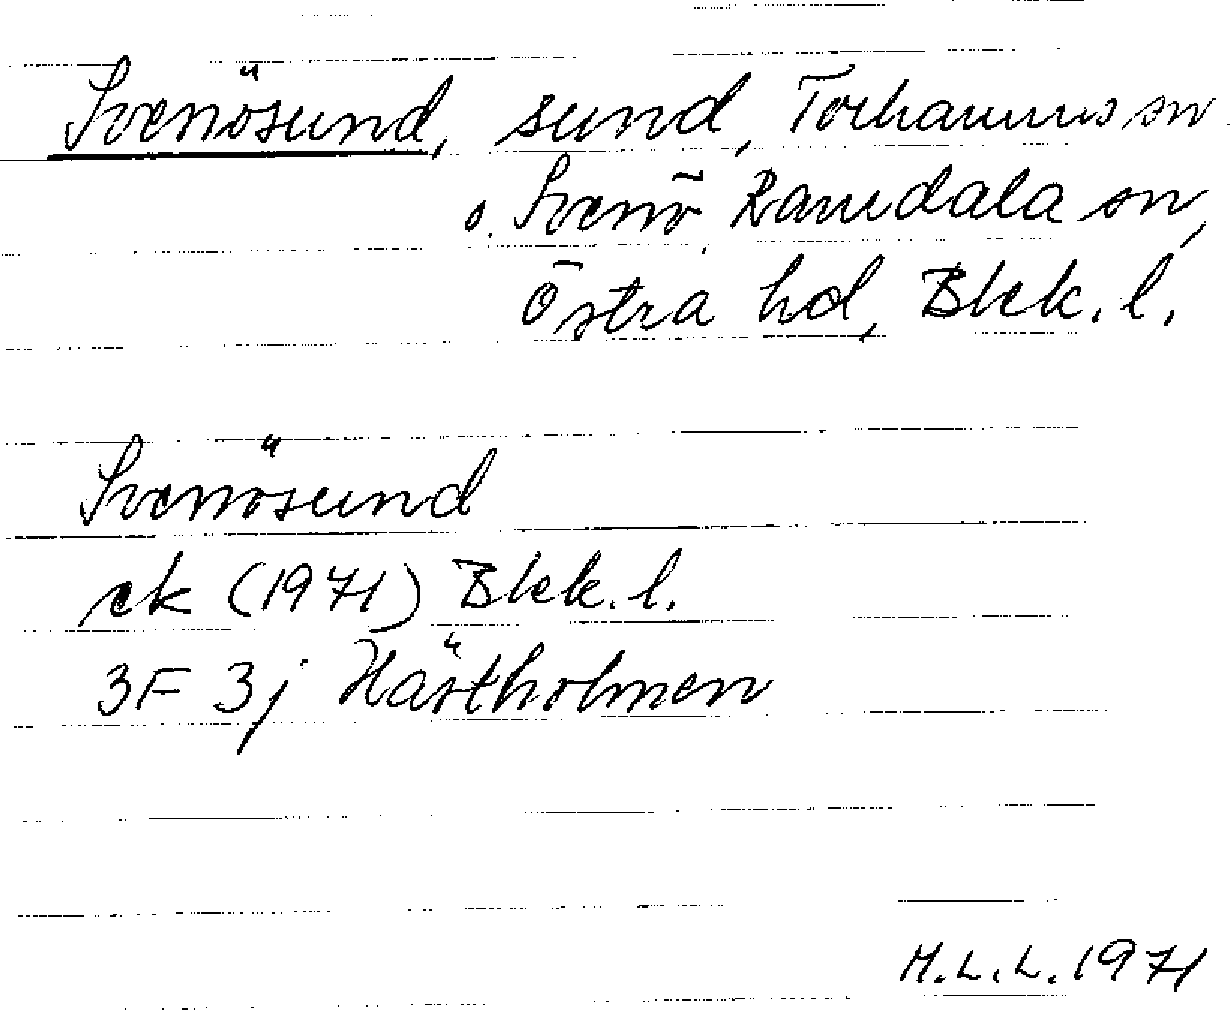 Svenösund, sund, Torhamns sn
o. Svenö, Ramdala sn,
Östra hd, Blek. l.
Svenösund
ek (1971) Blek. l.
3F 3j Hästholmen
M.L.L. 1971